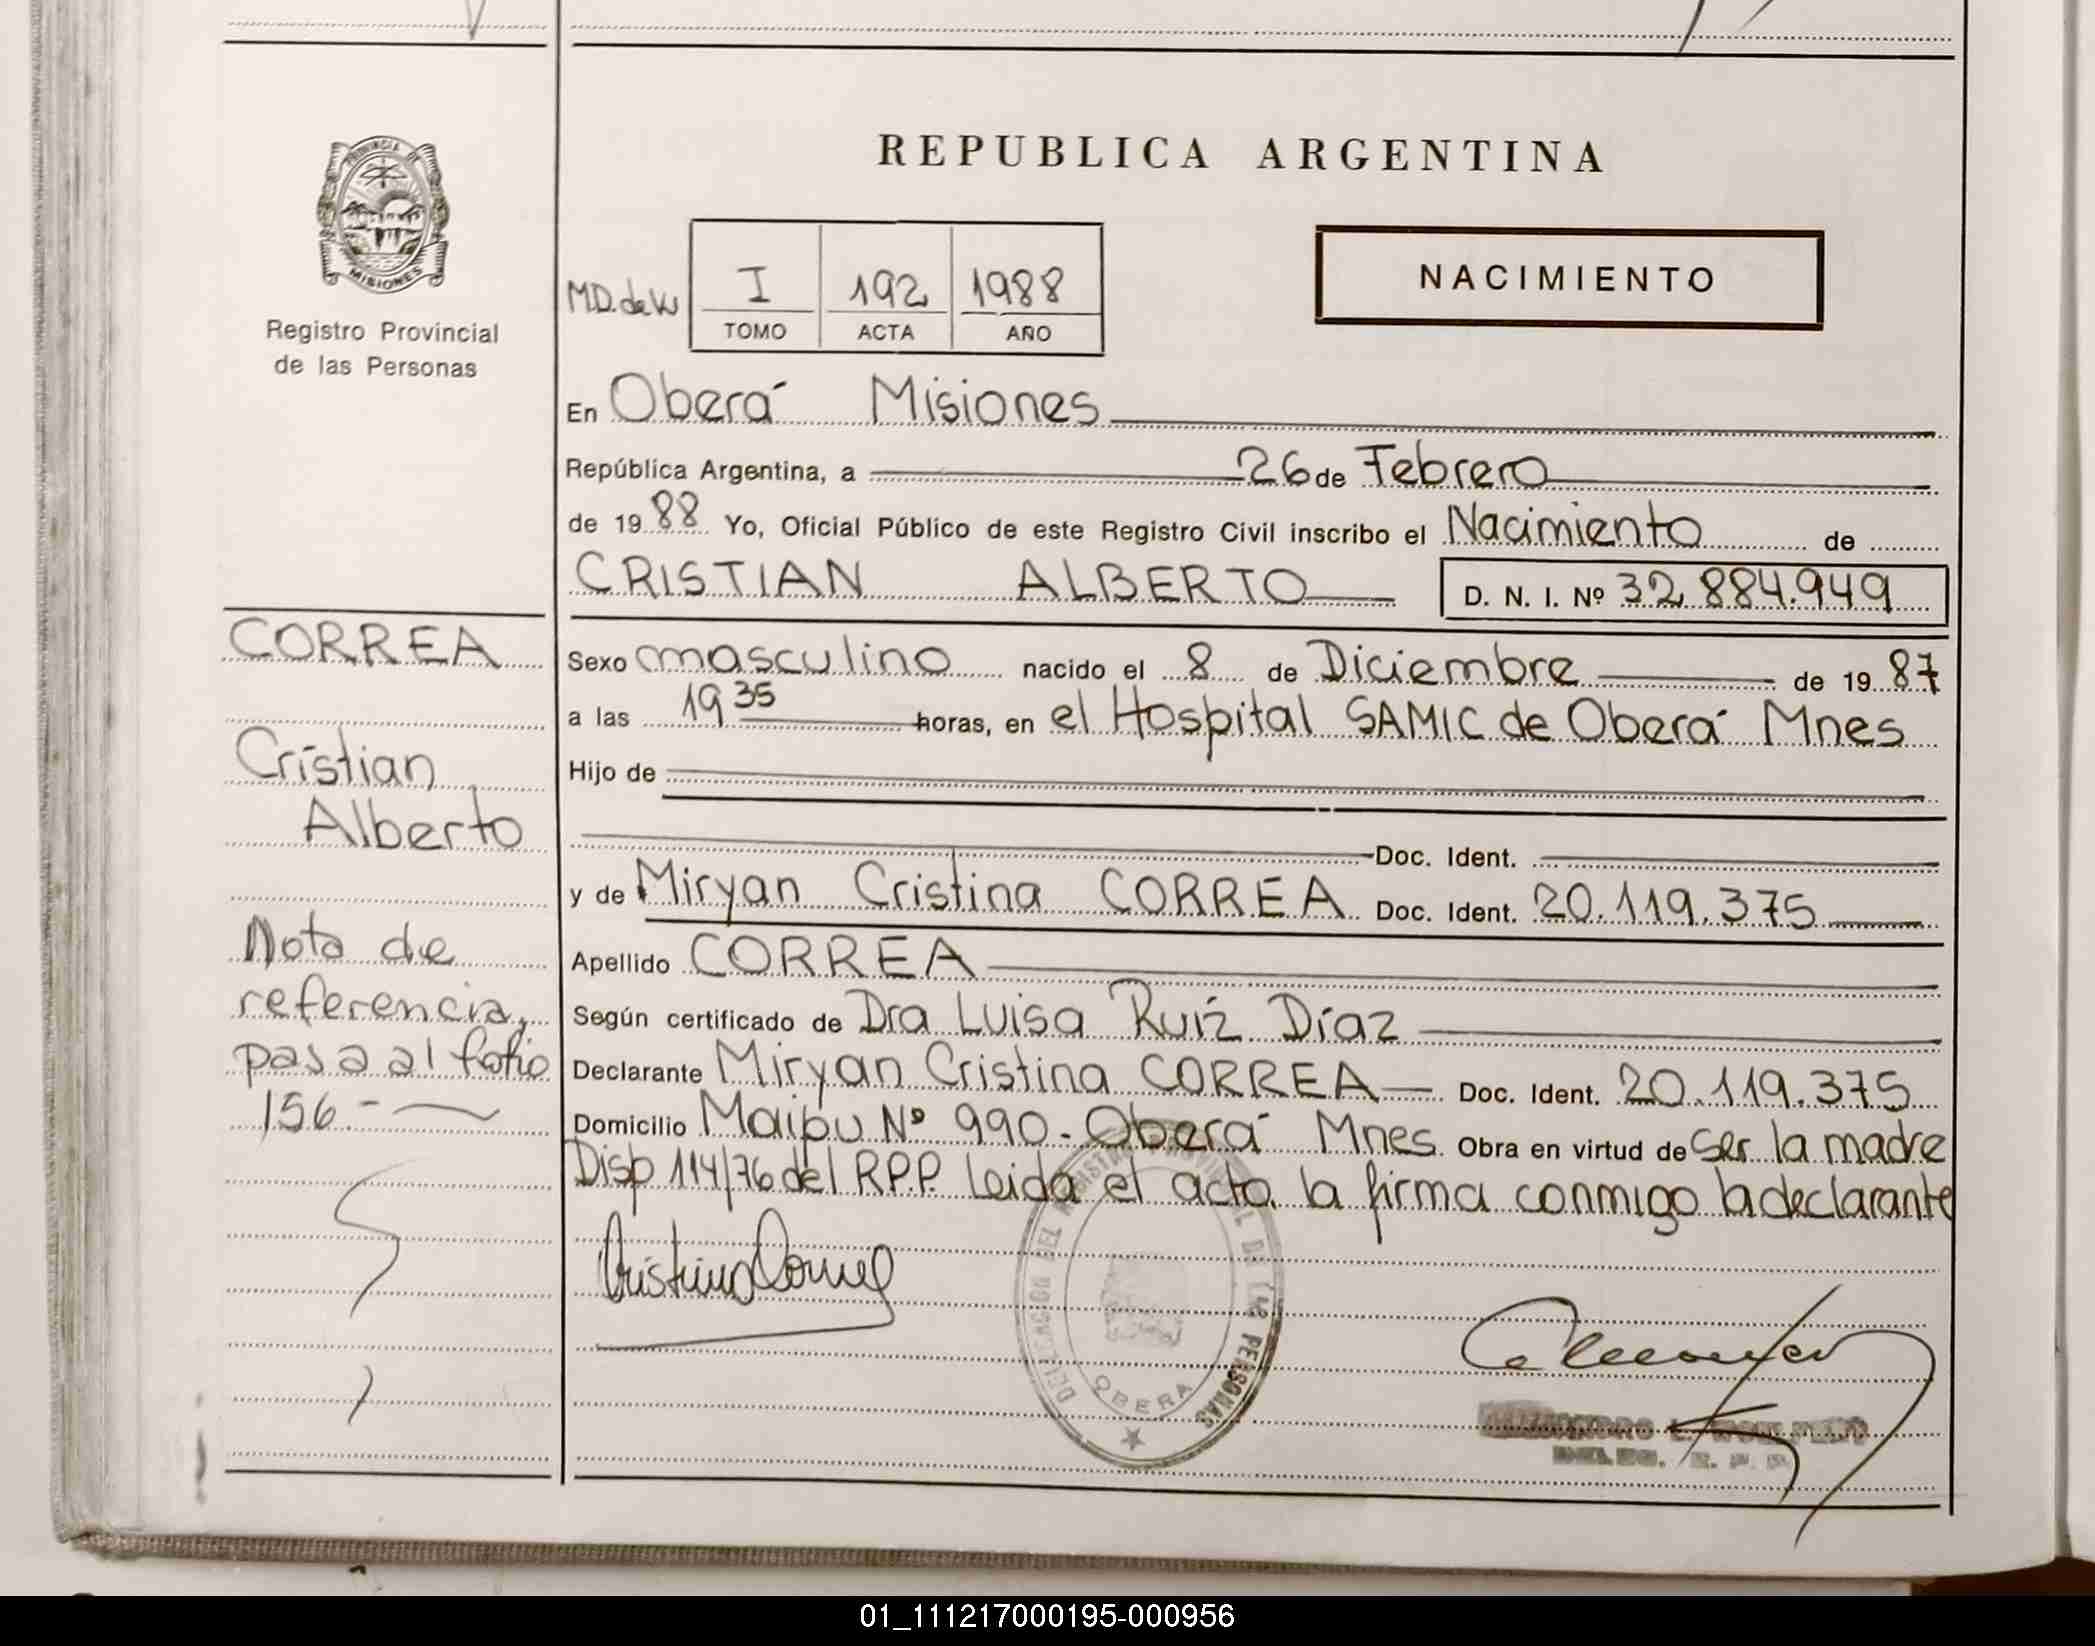 REPUBLICA ARGENTINA
PROVINCIA DE
MISIONES
Registro Provincial
de las Personas
I 192 1988
TOMO ACTA AÑO
NACIMIENTO
En Oberá Misiones
República Argentina, a 26 de Febrero
de 1988 Yo, Oficial Público de este Registro Civil inscribo el Nacimiento de
CRISTIAN ALBERTO D. N. I. Nº 32.884.949
CORREA
Cristian
Alberto
Nota de
referencia,
pasa al folio
156.-
Sexo masculino nacido el 8 de Diciembre de 1987
a las 19 35 horas, en el Hospital SAMIC de Oberá Mnes
Hijo de
Doc. Ident.
y de Miryan Cristina CORREA Doc. Ident. 20.119.375
Apellido CORREA
Según certificado de Dra Luisa Ruíz Díaz
Declarante Miryan Cristina CORREA Doc. Ident. 20.119.375
Domicilio Maipu Nº 990 - Oberá Mnes. Obra en virtud de ser la madre
Disp 114/76 del R.P.P. Leida el acta, la firma conmigo la declarante
DELEGACION DEL REGISTRO PROVINCIAL DE LAS PERSONAS
OBERA
01_111217000195-000956